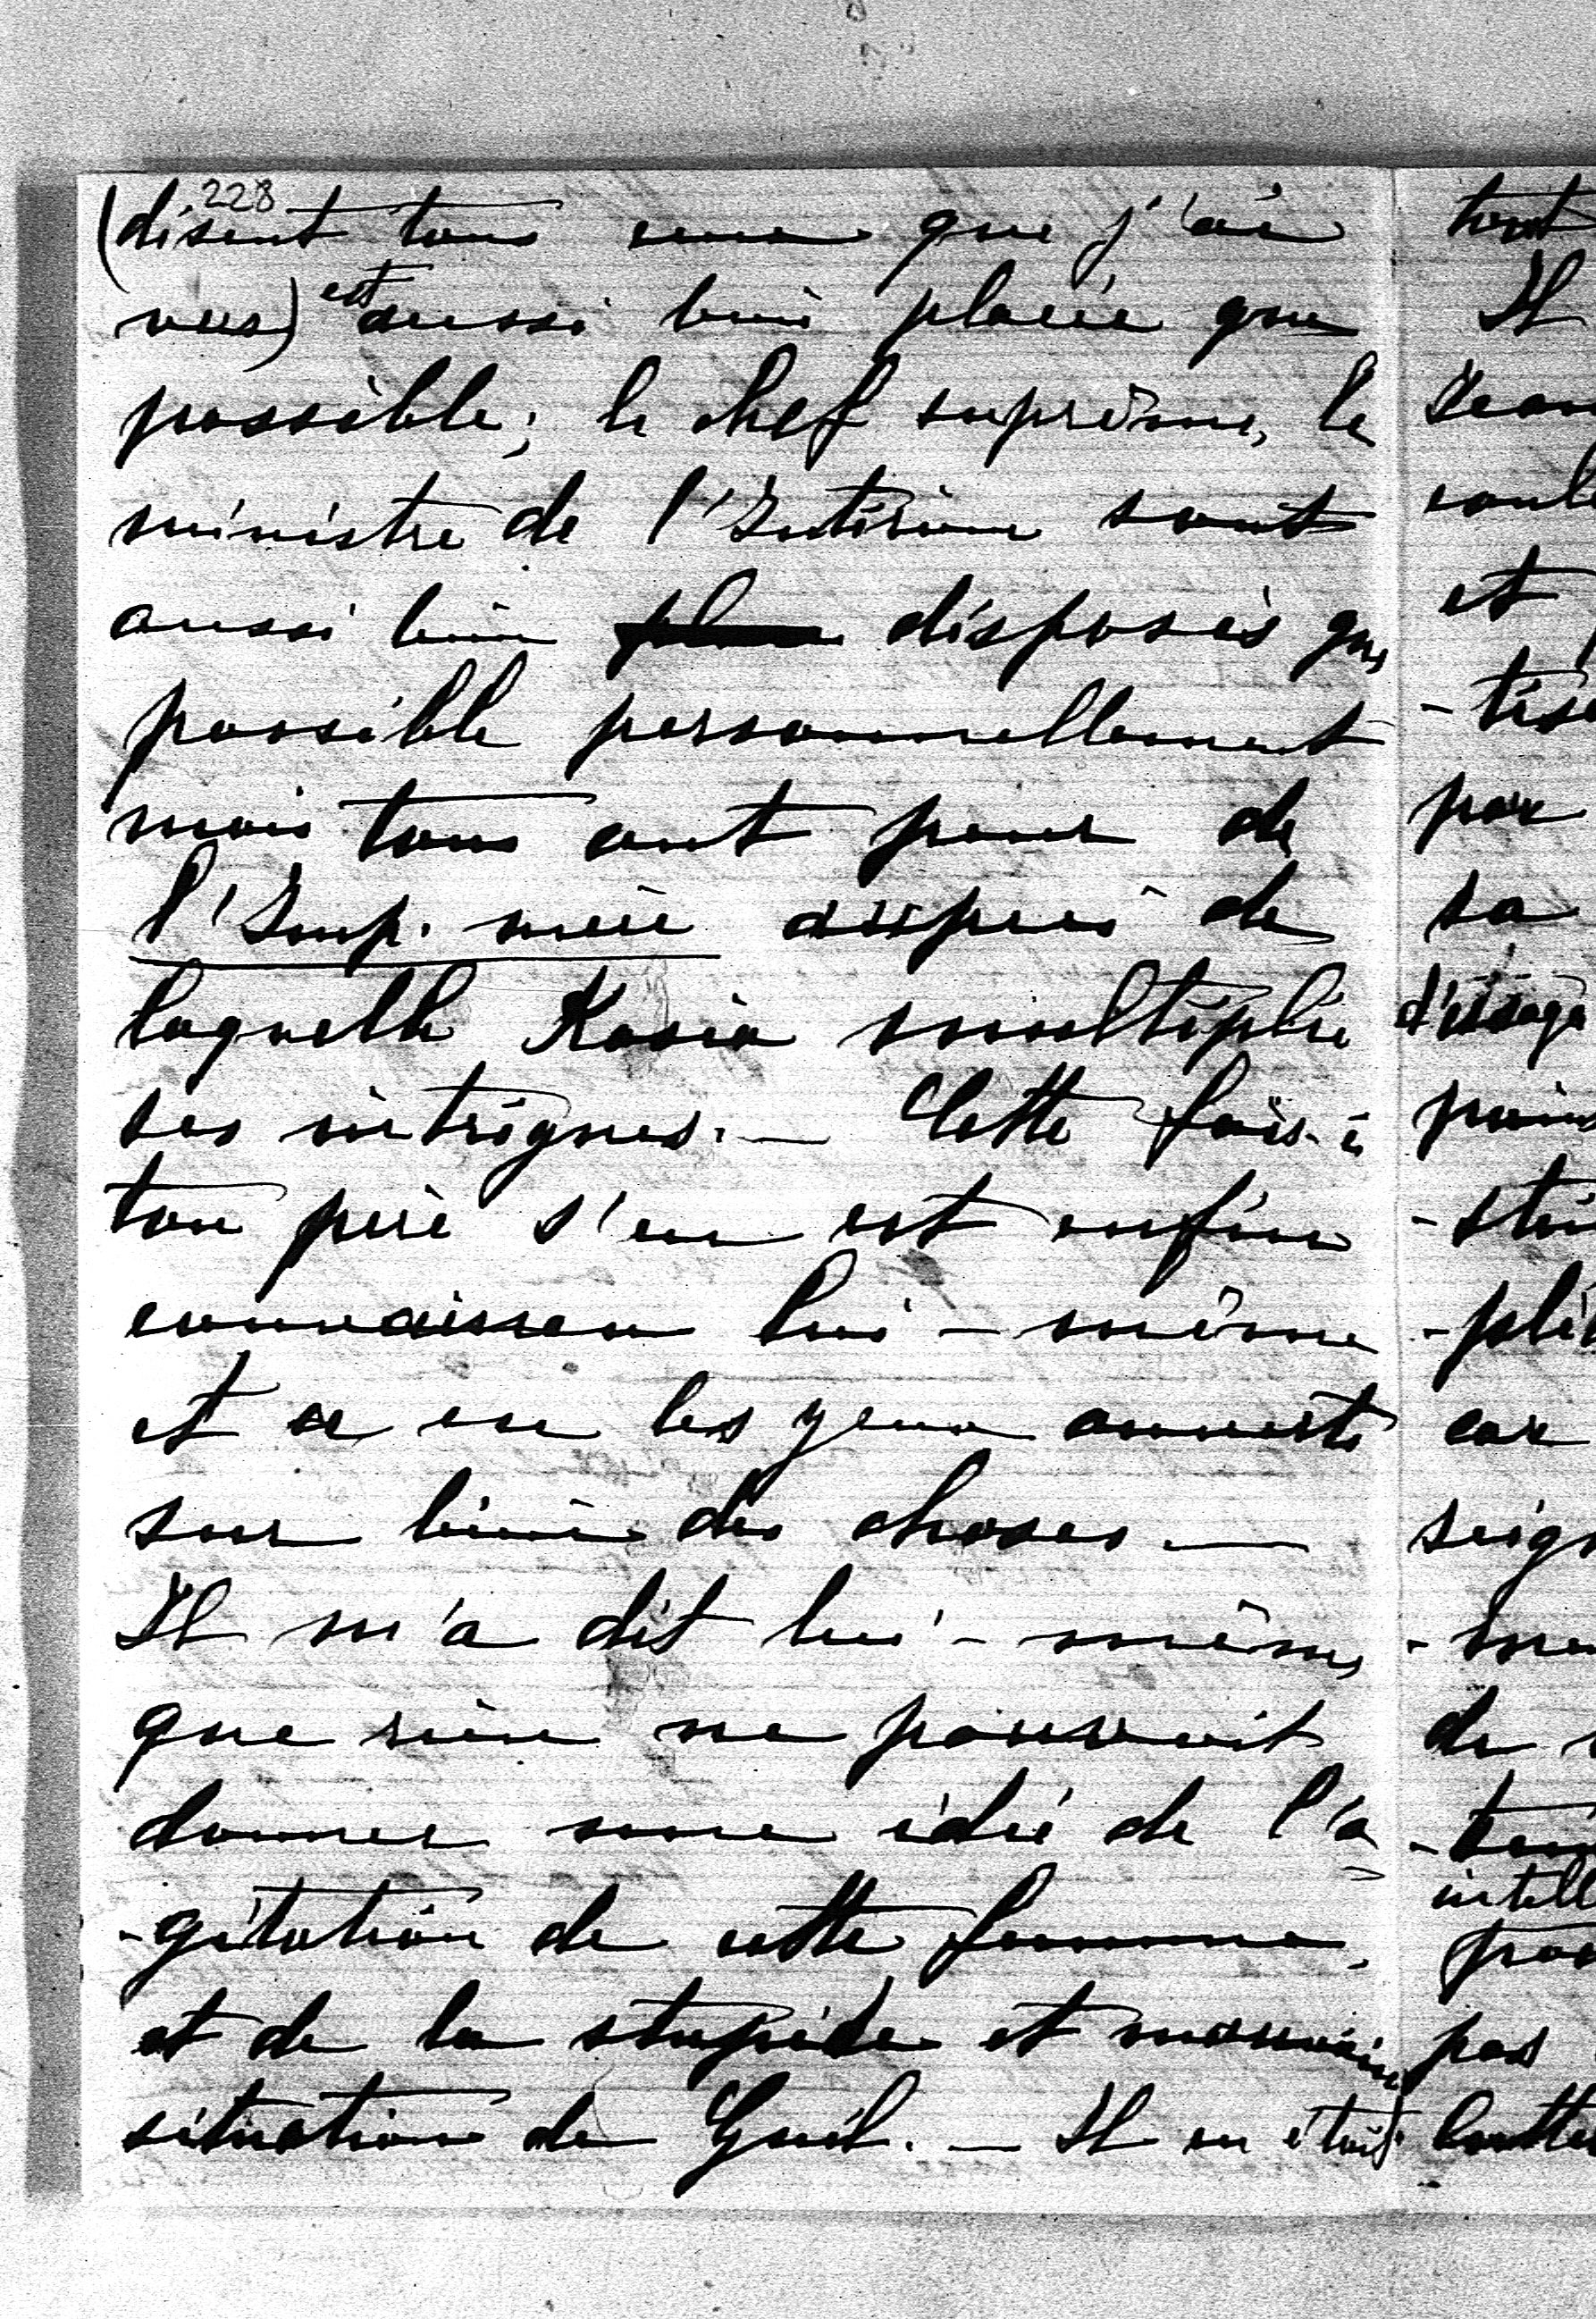 228
(disent tous ceux que j'ai
vus) est aussi bien placée que
possible; le chef suprême, le
ministre de l'Intérieur sont
aussi bien disposés que
possible personnellement
mais tous ont peur de
l'Imp. mère auprès de
laquelle Kasia multiplie
ses intrigues. — Cette fois-ci
ton père s'en est enfin
convaincu lui-même
et a eu les yeux ouverts
sur bien des choses —
Il m'a dit lui-même
que rien ne pouvait
donner une idée de l'a
-gitation de cette femme,
et de la stupide et mauvaise
situation de Guil. — Il en était
tout
Il
et
-tis
par
sa
-pli
car
seig
de
-ten
intell
pas